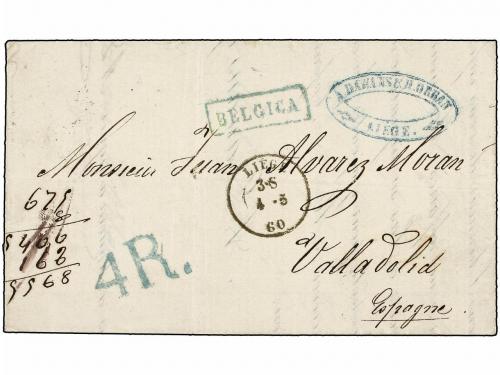 BELGICA
A. DAWANS & H. ORBAN
LIEGE.
Monsieur Juan Alvarez Moran
LIEGE
3-S
4-5
60
675
8
5466
68
5568
4R.
Valladolid
Espagne